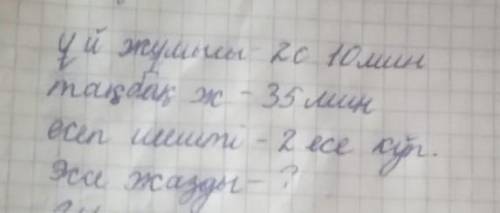 үй жұмысы - 2с 10мин
таңбақ ж - 35 мин
есеп шешті - 2 есе көп.
Эссе жазды - ?